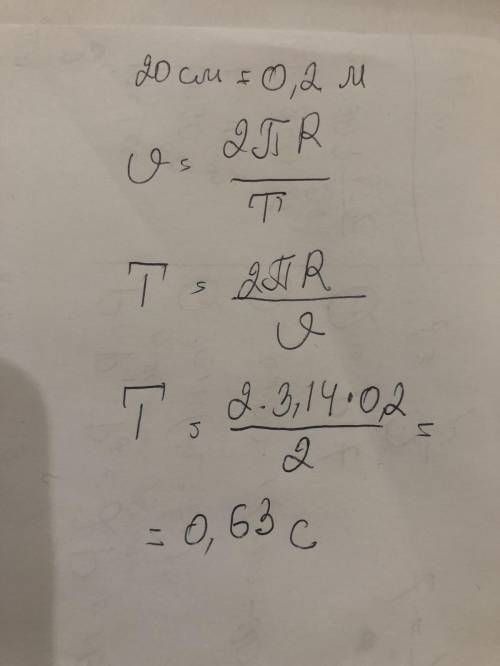 20 см = 0,2 м
υ = 2πR / T
T = 2πR / υ
T = 2·3,14·0,2 / 2 =
= 0,63 с